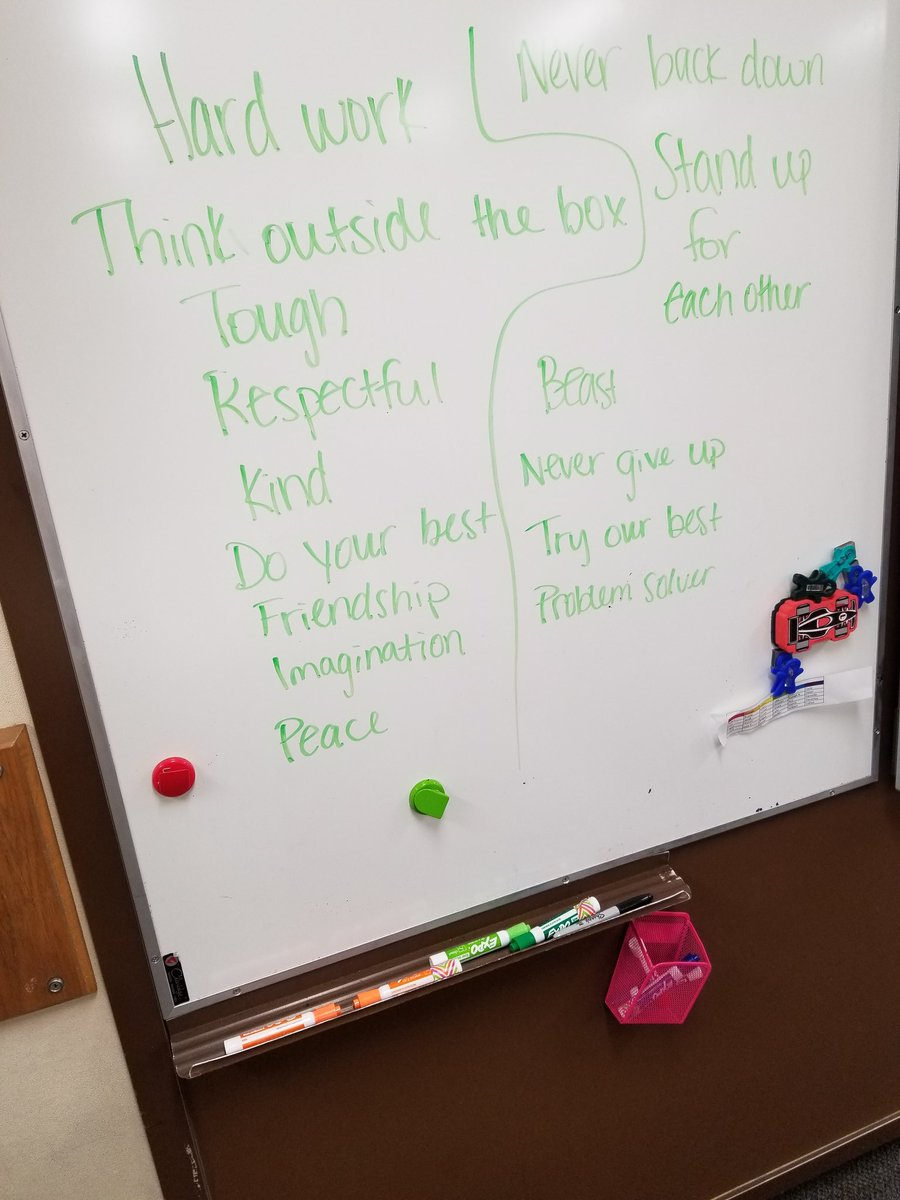 Hard work
Think outside the box
Tough
Respectful
Kind
Do your best
Friendship
Imagination
Peace
Never back down
Stand up
for
each other
Beast
Never give up
Try our best
Problem solver
EXPO
EXPO